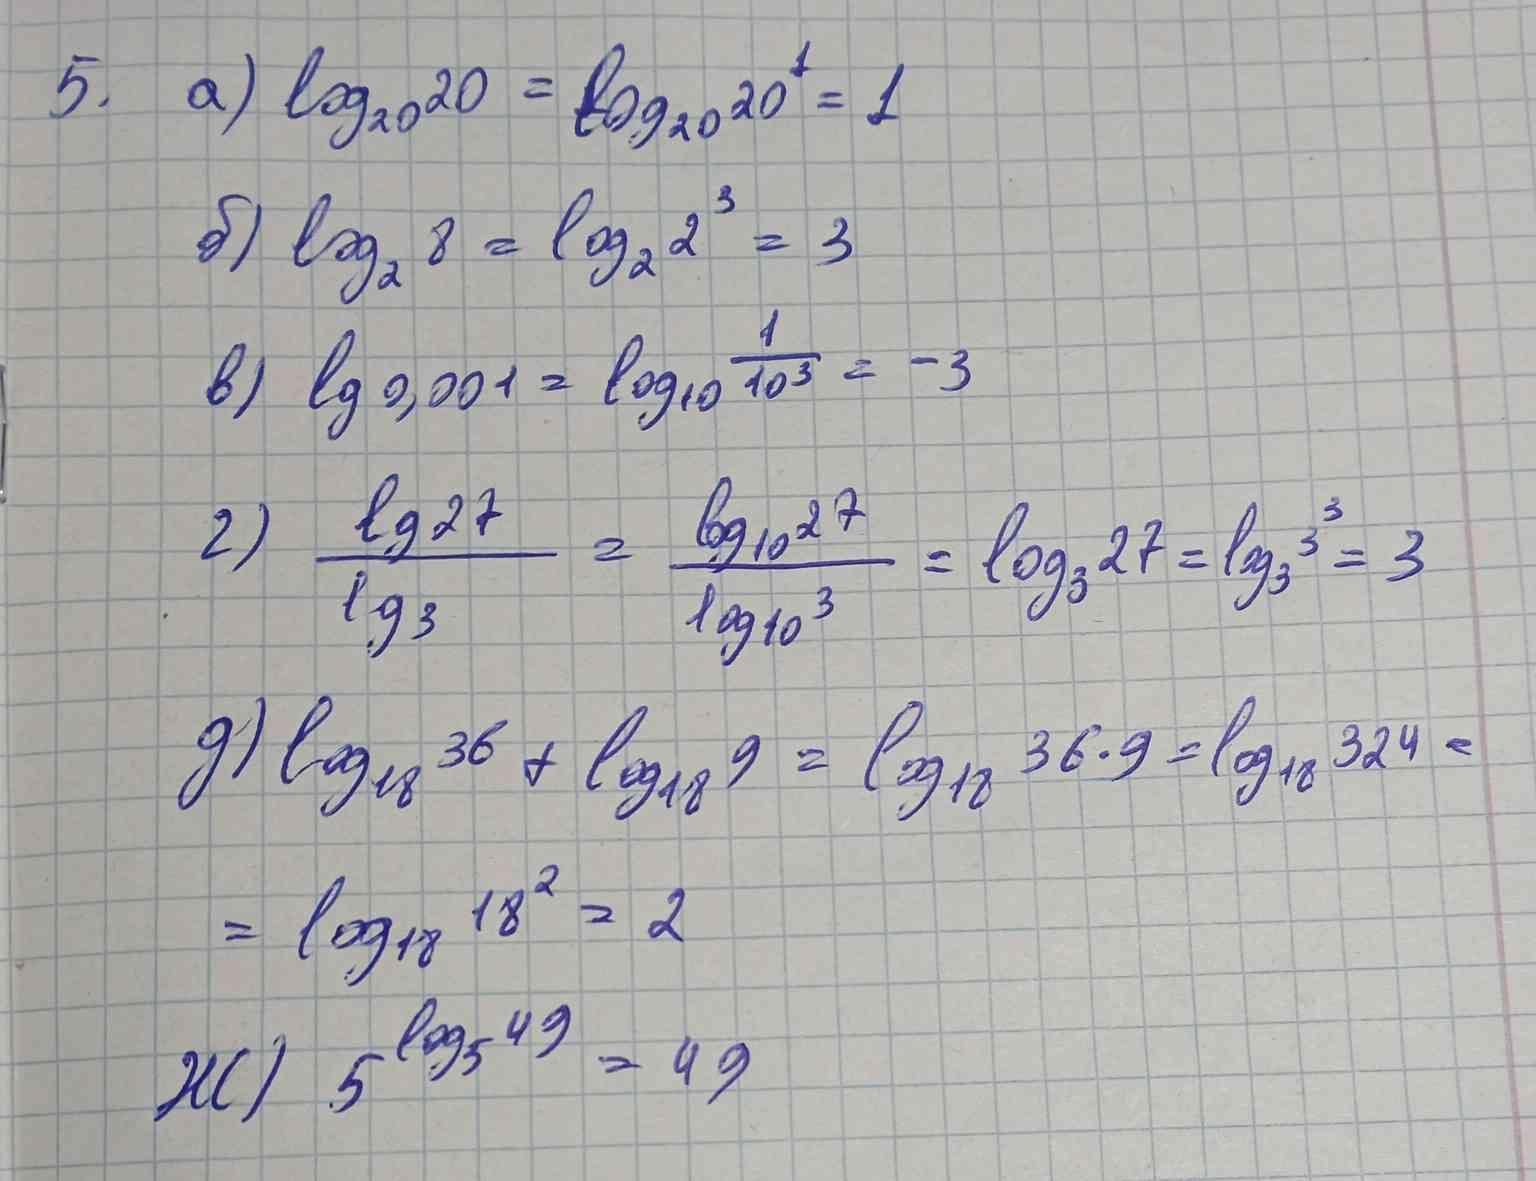 5. а) log₂₀20 = log₂₀20¹ = 1
б) log₂ 8 = log₂ 2³ = 3
в) lg 0,001 = log₁₀ 1/10³ = -3
г) lg 27 / lg 3 = log₁₀27 / log₁₀3 = log₃27 = log₃3³ = 3
д) log₁₈36 + log₁₈9 = log₁₈ 36·9 = log₁₈324 =
= log₁₈ 18² = 2
ж) 5^log₅49 = 49